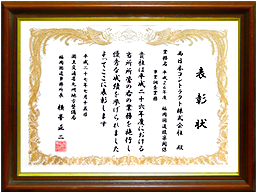 表彰状
西日本コントラクト株式会社 殿
業務名 平成26年度 福岡国道改築関係
事業調査業務
貴社は平成二十六年度における
当所所管の右の業務を施行し
優秀な成績を挙げられました
よってここに表彰します
平成二十七年七月十五日
国土交通省九州地方整備局
福岡国道事務所長